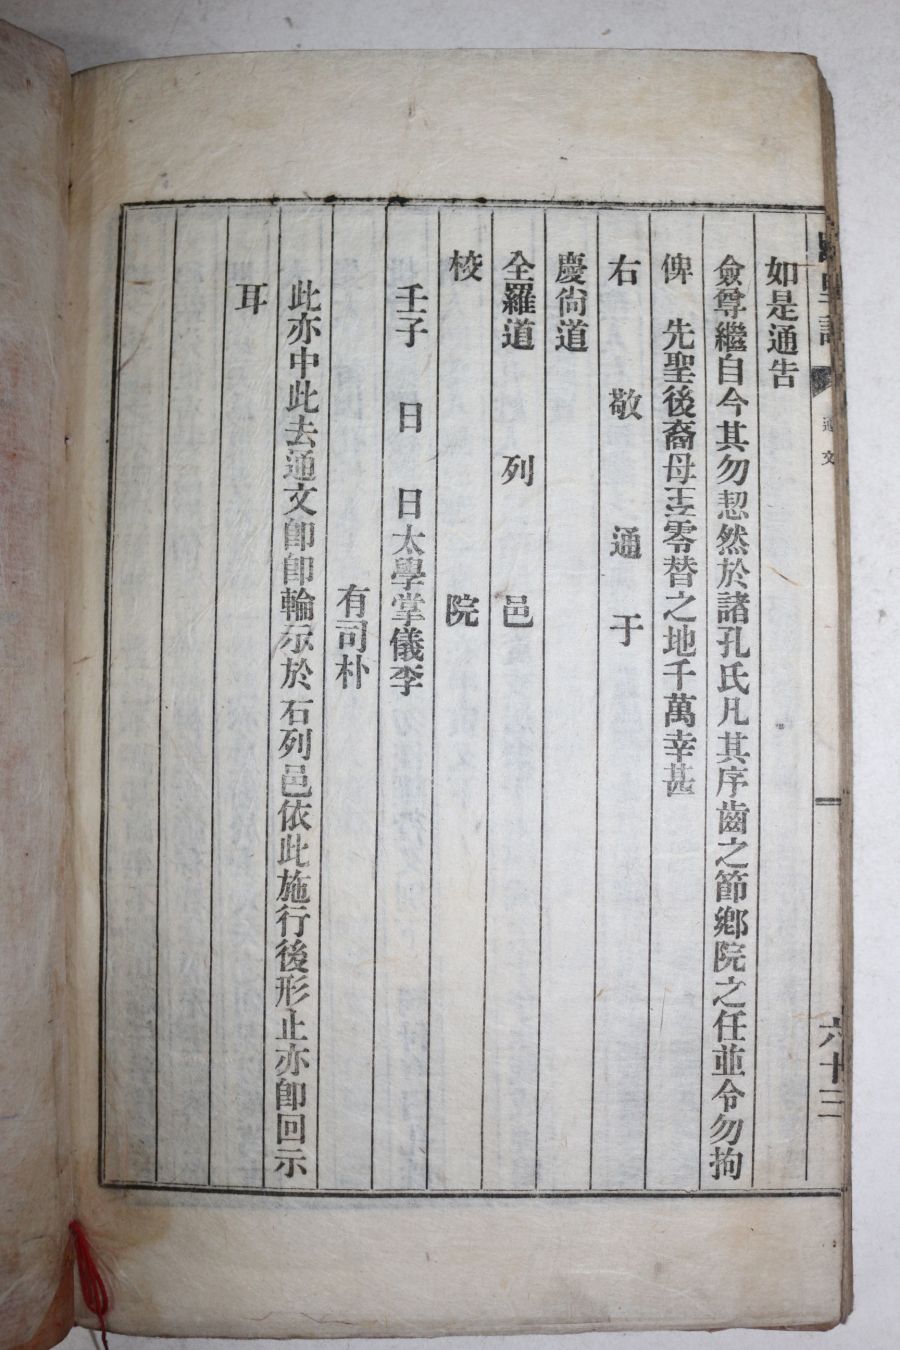 如是通告
僉尊繼自今其勿恝然於諸孔氏凡其序齒之節鄕院之任並令勿拘
俾 先聖後裔毋至零替之地千萬幸甚
右 敬 通 于
慶尙道
全羅道 列 邑
校 院
壬子 日 日太學掌儀李
有司朴
此亦中此去通文卽卽輪示於石列邑依此施行後形止亦卽回示
耳
通文
六十三